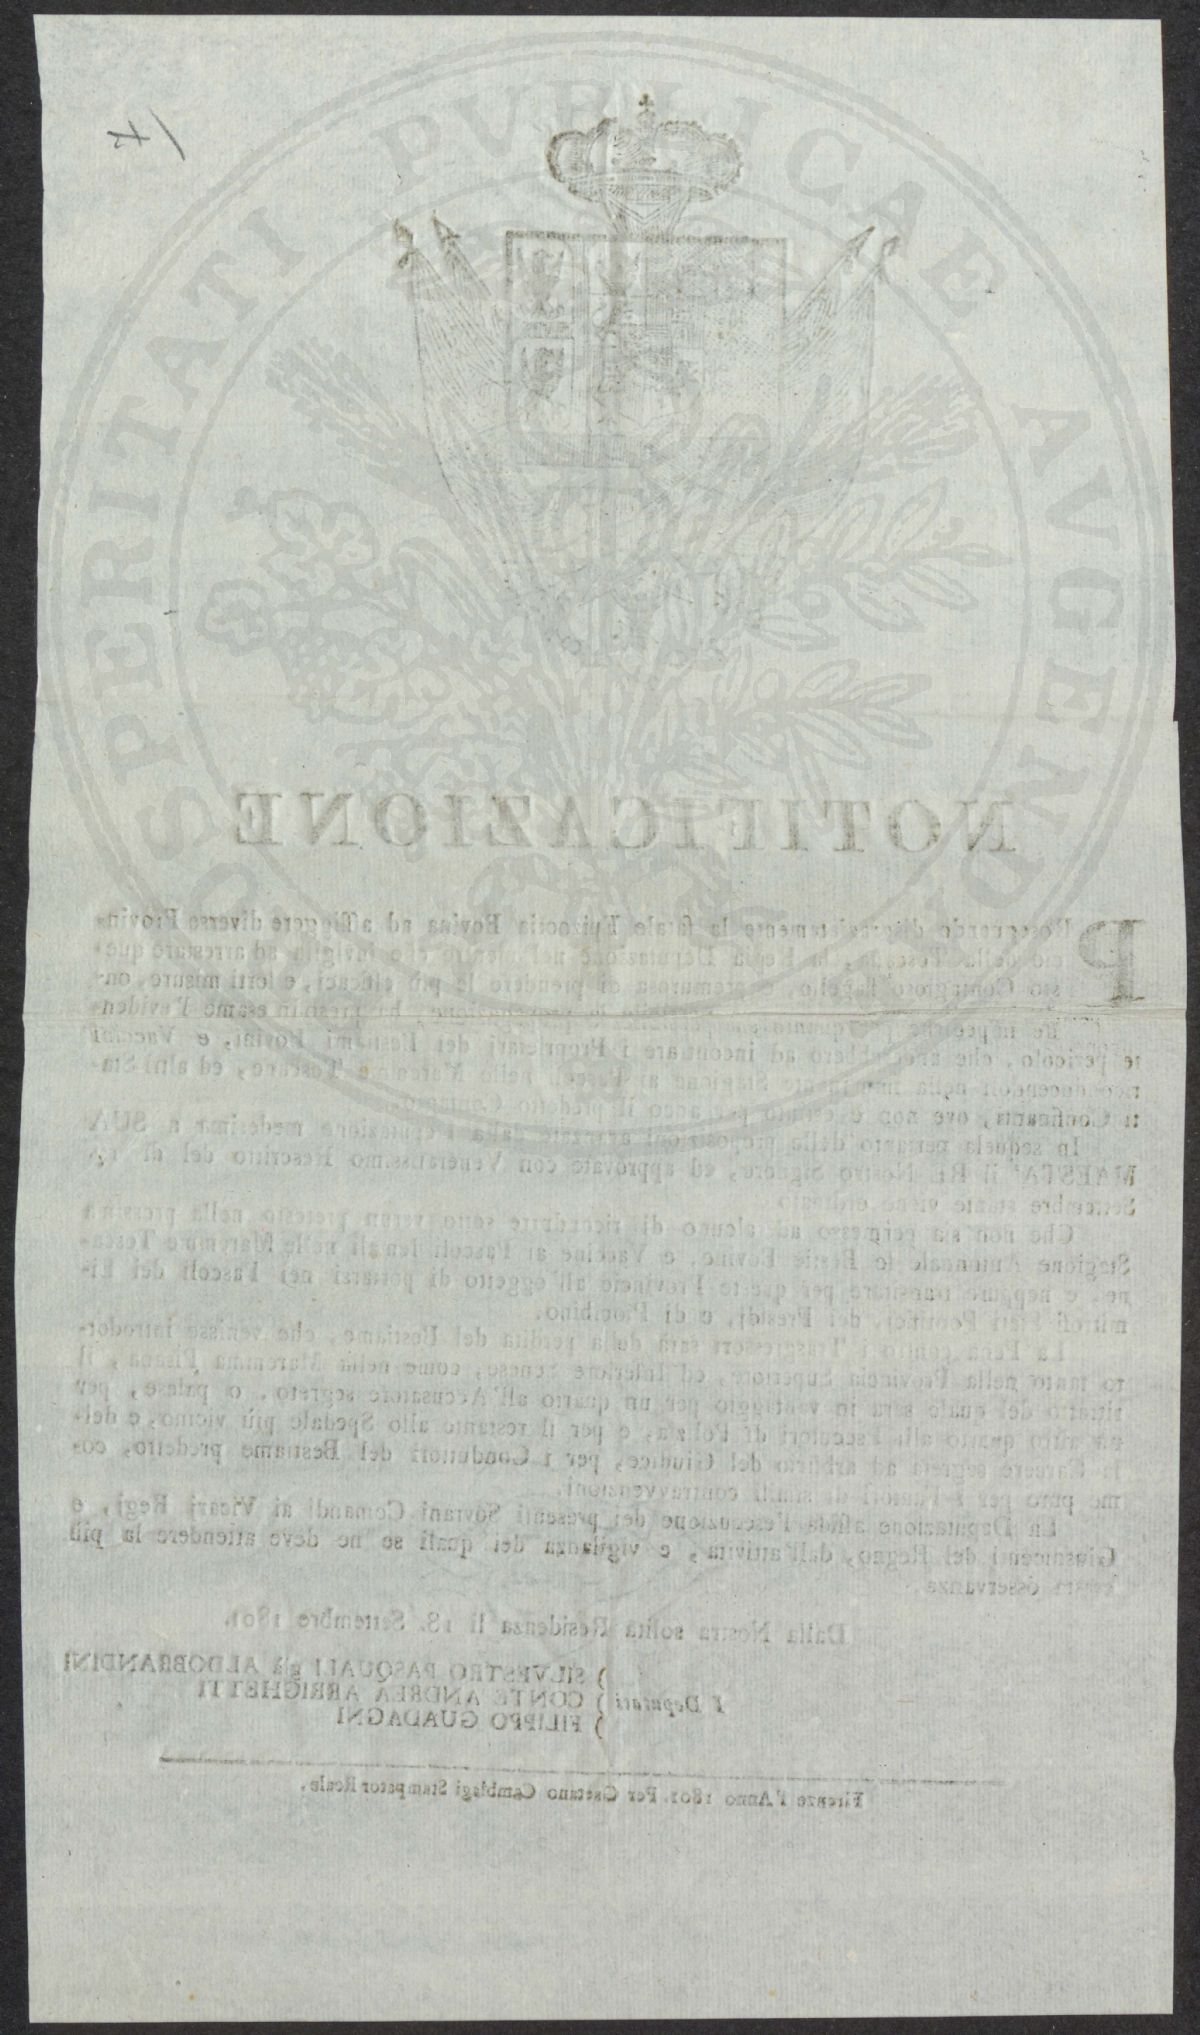 PROSPERITATI PVBLICAE AVGENDAE
14
NOTIFICAZIONE
PRoseguendo disgraziatamente la fatale Epizootia Bovina ad affliggere diverse Provin-
cie della Toscana, la Regia Deputazione nel mentre che invigila ad arrestare que-
sto Contagioso flagello, e premurosa di prendere le più efficaci, e forti misure, on-
de impedirne per quanto sia possibile la propagazione, ha preso in esame l'eviden-
te pericolo, che anderebbero ad incontrare i Proprietarj dei Bestiami Bovini, e Vaccini
riconducendoli nella imminente Stagione ai Pascoli nelle Maremme Toscane, ed altri Sta-
ti Confinanti, ove non è estinto per anco il predetto Contagio.
In sequela pertanto delle proposizioni avanzate dalla Deputazione medesima a SUA
MAESTA' il RE Nostro Signore, ed approvate con Veneratissimo Rescritto del dì
Settembre stante viene ordinato
Che non sia permesso ad alcuno di ricondurre sotto verun pretesto nella prossima
Stagione Autunnale le Bestie Bovine, e Vaccine ai Pascoli serali nelle Maremme Tosca-
ne, e neppure transitare per queste Provincie all'oggetto di portarsi nei Pascoli dei Li-
mitrofi Stati Pontificj, dei Presidj, e di Piombino.
La Pena contro i Trasgressori sarà della perdita del Bestiame, che venisse introdot-
to tanto nella Provincia Superiore, ed Inferiore Senese, come nella Maremma Pisana, il
ritratto del quale sarà in vantaggio per un quarto all'Accusatore segreto, o palese, per
un altro quarto alli Esecutori di Polizia, e per il restante allo Spedale più vicino, e del-
la Carcere segreta ad arbitrio del Giudice, per i Conduttori del Bestiame predetto, co-
me pure per i Fautori di simili contravvenzioni.
La Deputazione affida l'esecuzione dei presenti Sovrani Comandi ai Vicarj Regj, e
Giusdicenti del Regno, dall'attività, e vigilanza dei quali se ne deve attendere la più
esatta osservanza.
Dalla Nostra solita Residenza li 18. Settembre 1801.
I Deputati ) SILVESTRO PASQUALI già ALDOBRANDINI
) CONTE ANDREA ARRIGHETTI
) FILIPPO GUADAGNI
Firenze l'Anno 1801. Per Gaetano Cambiagi Stampator Reale.